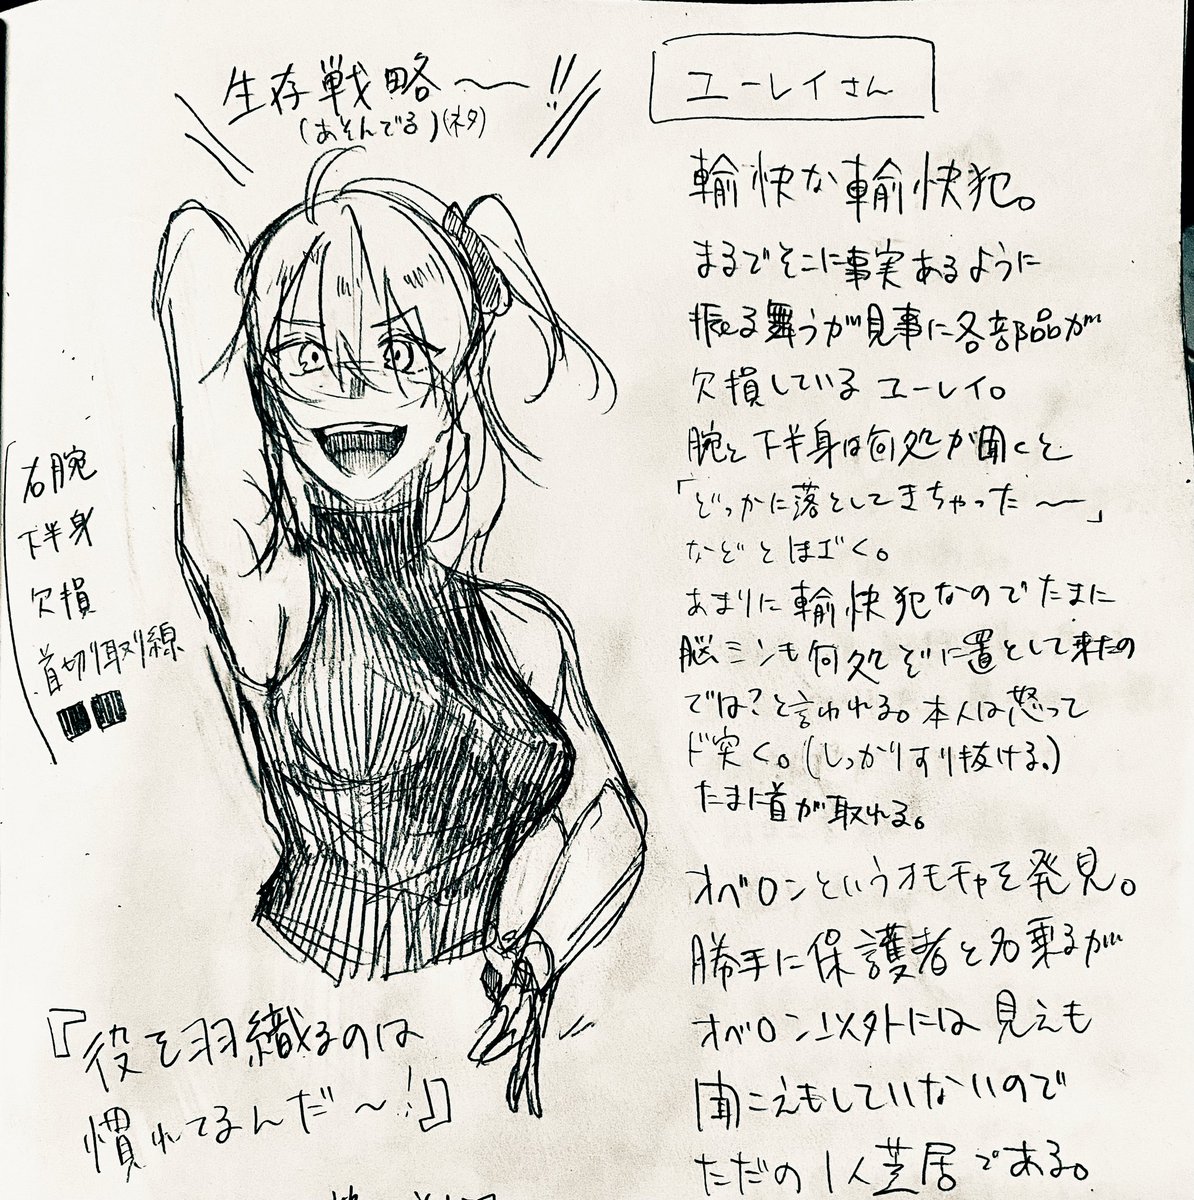 生存戦略〜!!
(あそんでる)(ネタ)
ユーレイさん
輸快な輸快犯。
まるでそこに事実あるように
振る舞うが見事に各部品が
欠損しているユーレイ。
腕と下半身は何処が聞くと
「どっかに落としてきちゃった〜」
などとほざく。
あまりに輸快犯なのでたまに
脳ミソも何処ぞに置として来たの
では?と言われる。本人は怒って
ド突く。(しっかりすり抜ける。)
たまに首が取れる。
オベロンというオモチャを発見。
勝手に保護者と名乗るが
オベロン以外には見えも
聞こえもしていないので
ただの1人芝居である。
右腕
下半身
欠損
首切り取り線
『役を羽織るのは
慣れてるんだ〜!』